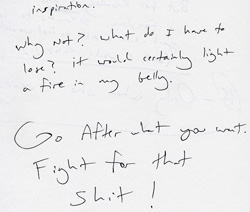 inspiration.
why not? what do I have to
lose? it would certainly light
a fire in my belly.
Go After what you want.
Fight for that
shit!